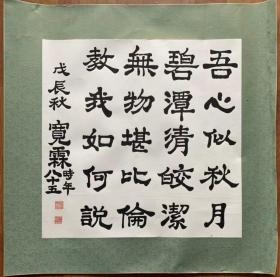 吾心似秋月
碧潭清皎潔
無物堪比倫
教我如何說
戊辰秋 寬霖時年八十五